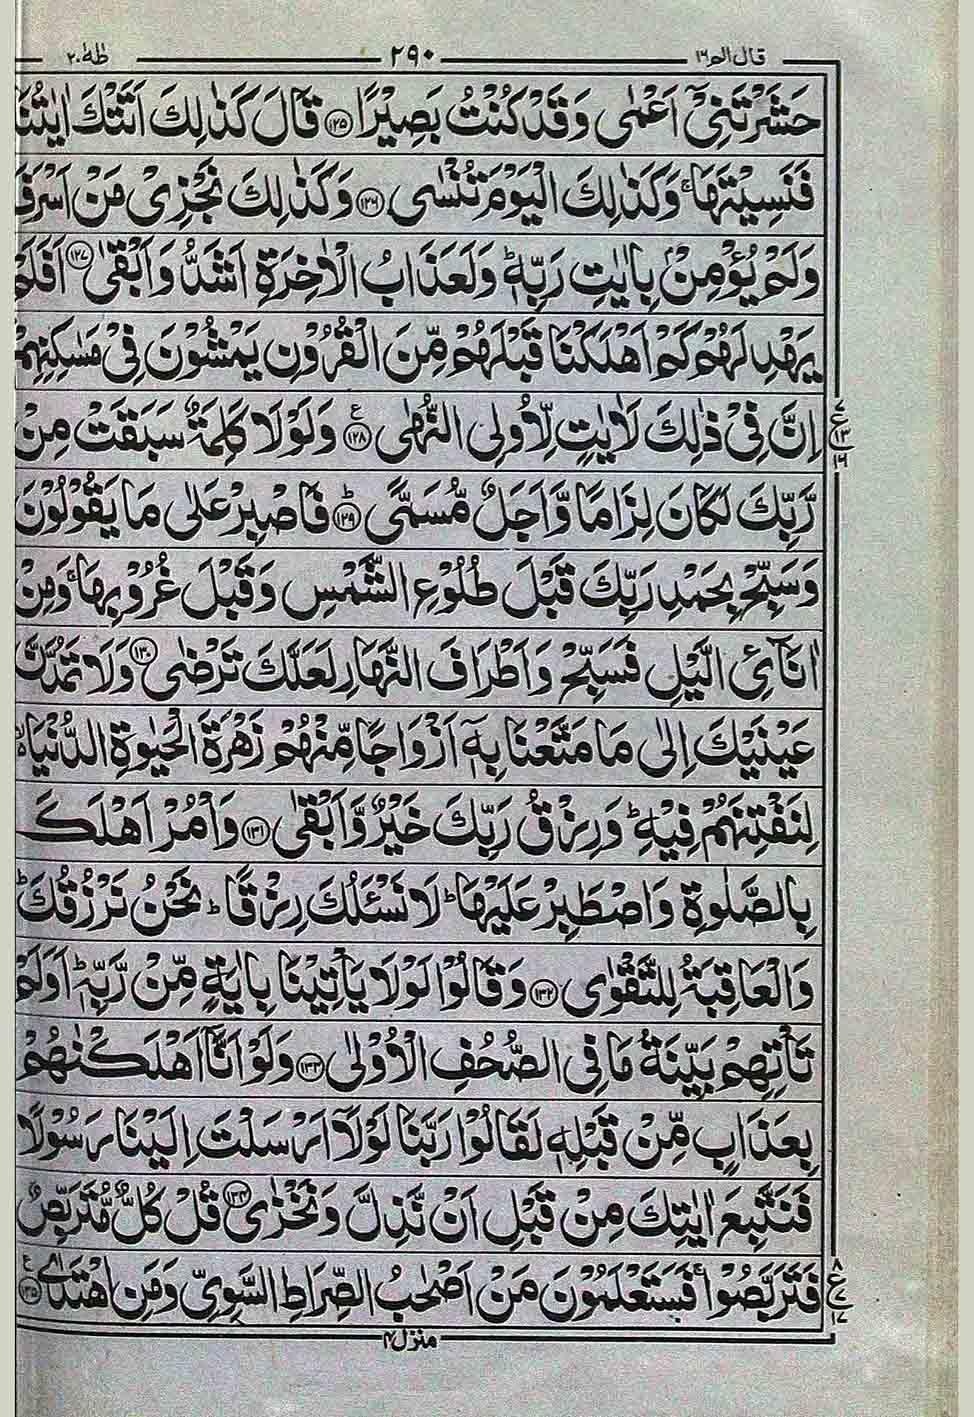 قال الم ١٦ ٢٩٠ طٰهٰ ٢٠
حَشَرْتَنِیْۤ اَعْمٰی وَقَدْ كُنْتُ بَصِیْرًا ﴿۱۲۵﴾ قَالَ كَذٰلِكَ اَتَتْكَ اٰیٰتُنَا
فَنَسِیْتَهَا ۚ وَكَذٰلِكَ الْیَوْمَ تُنْسٰی ﴿۱۲۶﴾ وَكَذٰلِكَ نَجْزِیْ مَنْ اَسْرَفَ
وَلَمْ یُؤْمِنْۢ بِاٰیٰتِ رَبِّهٖ ؕ وَلَعَذَابُ الْاٰخِرَةِ اَشَدُّ وَاَبْقٰی ﴿۱۲۷﴾ اَفَلَمْ
یَهْدِ لَهُمْ كَمْ اَهْلَكْنَا قَبْلَهُمْ مِّنَ الْقُرُوْنِ یَمْشُوْنَ فِیْ مَسٰكِنِهِمْ
اِنَّ فِیْ ذٰلِكَ لَاٰیٰتٍ لِّاُولِی النُّهٰی ﴿۱۲۸﴾ ع وَلَوْلَا كَلِمَةٌ سَبَقَتْ مِنْ
٧ ع ١٣ ١٦
رَّبِّكَ لَكَانَ لِزَامًا وَّاَجَلٌ مُّسَمًّی ﴿۱۲۹﴾ ؕ فَاصْبِرْ عَلٰی مَا یَقُوْلُوْنَ
وَسَبِّحْ بِحَمْدِ رَبِّكَ قَبْلَ طُلُوْعِ الشَّمْسِ وَقَبْلَ غُرُوْبِهَا ۚ وَمِنْ
اٰنَآئِ الَّیْلِ فَسَبِّحْ وَاَطْرَافَ النَّهَارِ لَعَلَّكَ تَرْضٰی ﴿۱۳۰﴾ وَلَا تَمُدَّنَّ
عَیْنَیْكَ اِلٰی مَا مَتَّعْنَا بِهٖۤ اَزْوَاجًا مِّنْهُمْ زَهْرَةَ الْحَیٰوةِ الدُّنْیَا ۙ۬
لِنَفْتِنَهُمْ فِیْهِ ؕ وَرِزْقُ رَبِّكَ خَیْرٌ وَّاَبْقٰی ﴿۱۳۱﴾ وَاْمُرْ اَهْلَكَ
بِالصَّلٰوةِ وَاصْطَبِرْ عَلَیْهَا ؕ لَا نَسْـَٔلُكَ رِزْقًا ؕ نَحْنُ نَرْزُقُكَ ؕ
وَالْعَاقِبَةُ لِلتَّقْوٰی ﴿۱۳۲﴾ وَقَالُوْا لَوْلَا یَاْتِیْنَا بِاٰیَةٍ مِّنْ رَّبِّهٖ ؕ اَوَلَمْ
تَاْتِهِمْ بَیِّنَةُ مَا فِی الصُّحُفِ الْاُوْلٰی ﴿۱۳۳﴾ وَلَوْ اَنَّاۤ اَهْلَكْنٰهُمْ
بِعَذَابٍ مِّنْ قَبْلِهٖ لَقَالُوْا رَبَّنَا لَوْلَاۤ اَرْسَلْتَ اِلَیْنَا رَسُوْلًا
فَنَتَّبِعَ اٰیٰتِكَ مِنْ قَبْلِ اَنْ نَّذِلَّ وَنَخْزٰی ﴿۱۳۴﴾ قُلْ كُلٌّ مُّتَرَبِّصٌ
فَتَرَبَّصُوْا ۚ فَسَتَعْلَمُوْنَ مَنْ اَصْحٰبُ الصِّرَاطِ السَّوِیِّ وَمَنِ اهْتَدٰی ﴿۱۳۵﴾ ع
٨ ع ٧ ١٧
منزل ٤